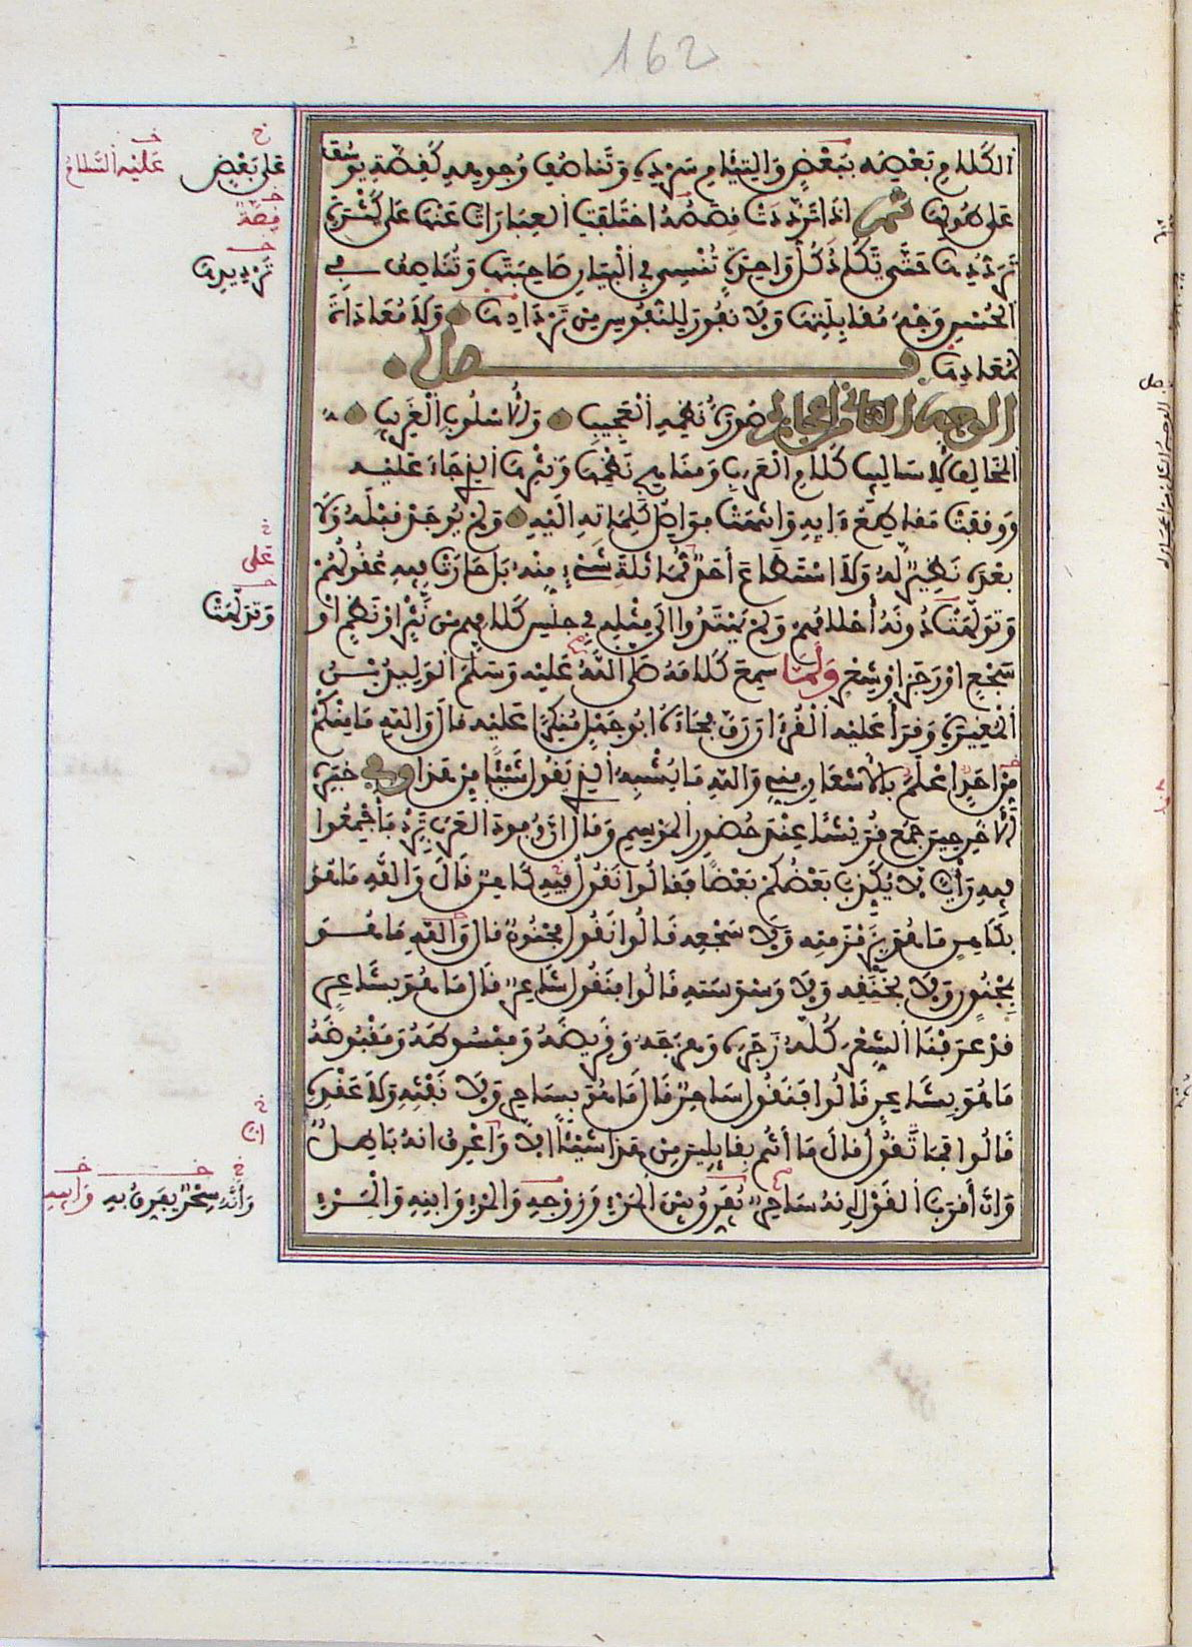 162
الكلام بعضه ببعض والتئام سرده وتناصف وجوهه كقصة يوسف
على طولها ثم اذا ترددت قصصه اختلفت العبارات عنها على كثرة
ترددها حتى تكاد كل واحدة تنسي في البيان صاحبتها وتناصف في
الحسن وجه مقابلتها ولا نفور للنفوس من تردادها ولا معاداة
لمعادها فصل
الوجه الثاني من اعجازه صورة نظمه العجيب والاسلوب الغريب
المخالف لاساليب كلام العرب ومناهج نظمها ونثرها الذي جاء عليه
ووقفت مقاطع ءايه وانتهت فواصل كلماته اليه ولم يوجد قبله ولا
بعده نظير له ولا استطاع أحد مماثلة شيء منه بل حارت فيه عقولهم
وتولهت دونه أحلامهم ولم يهتدوا الى مثله في جنس كلامهم من نثر او نظم او
سجع او رجز او شعر ولما سمع كلامه صلى الله عليه وسلم الوليد بن
المغيرة وقرأ عليه القرءان رق فجاءه ابو جهل منكرا عليه قال والله ما منكم
من احد اعلم بالاشعار مني والله ما يشبه الذي يقول شيئا من هذا وفي خبره
الاخر حين جمع قريشا عند حضور الموسم وقال ان وفود العرب ترد فأجمعوا
فيه رأيا لا يكذب بعضكم بعضا فقالوا نقول فيه كاهن قال والله ما هو
بكاهن ما هو بزمزمته ولا سجعه قالوا نقول مجنون قال والله ما هو
بمجنون ولا بخنقه ولا وسوسته قالوا فنقول شاعر قال ما هو بشاعر
قد عرفنا الشعر كله رجزه وهزجه وقريضه ومبسوطه ومقبوضه
ما هو بشاعر قالوا فنقول ساحر قال ما هو بساحر ولا نفثه ولا عقده
قالوا فما نقول قال ما أنتم بقائلين من هذا شيئا الا وأعرف انه باطل
وان أقرب القول انه ساحر يفرق بين المرء وزوجه والمرء وابنه والمرء
خ
على بعض
خ
عليه السلام
خ
قصة
خ
ترديدها
خ
على
خ
وتولهت
خ
ان
خ
وأنه سحر يفرق به
خ
وابيه